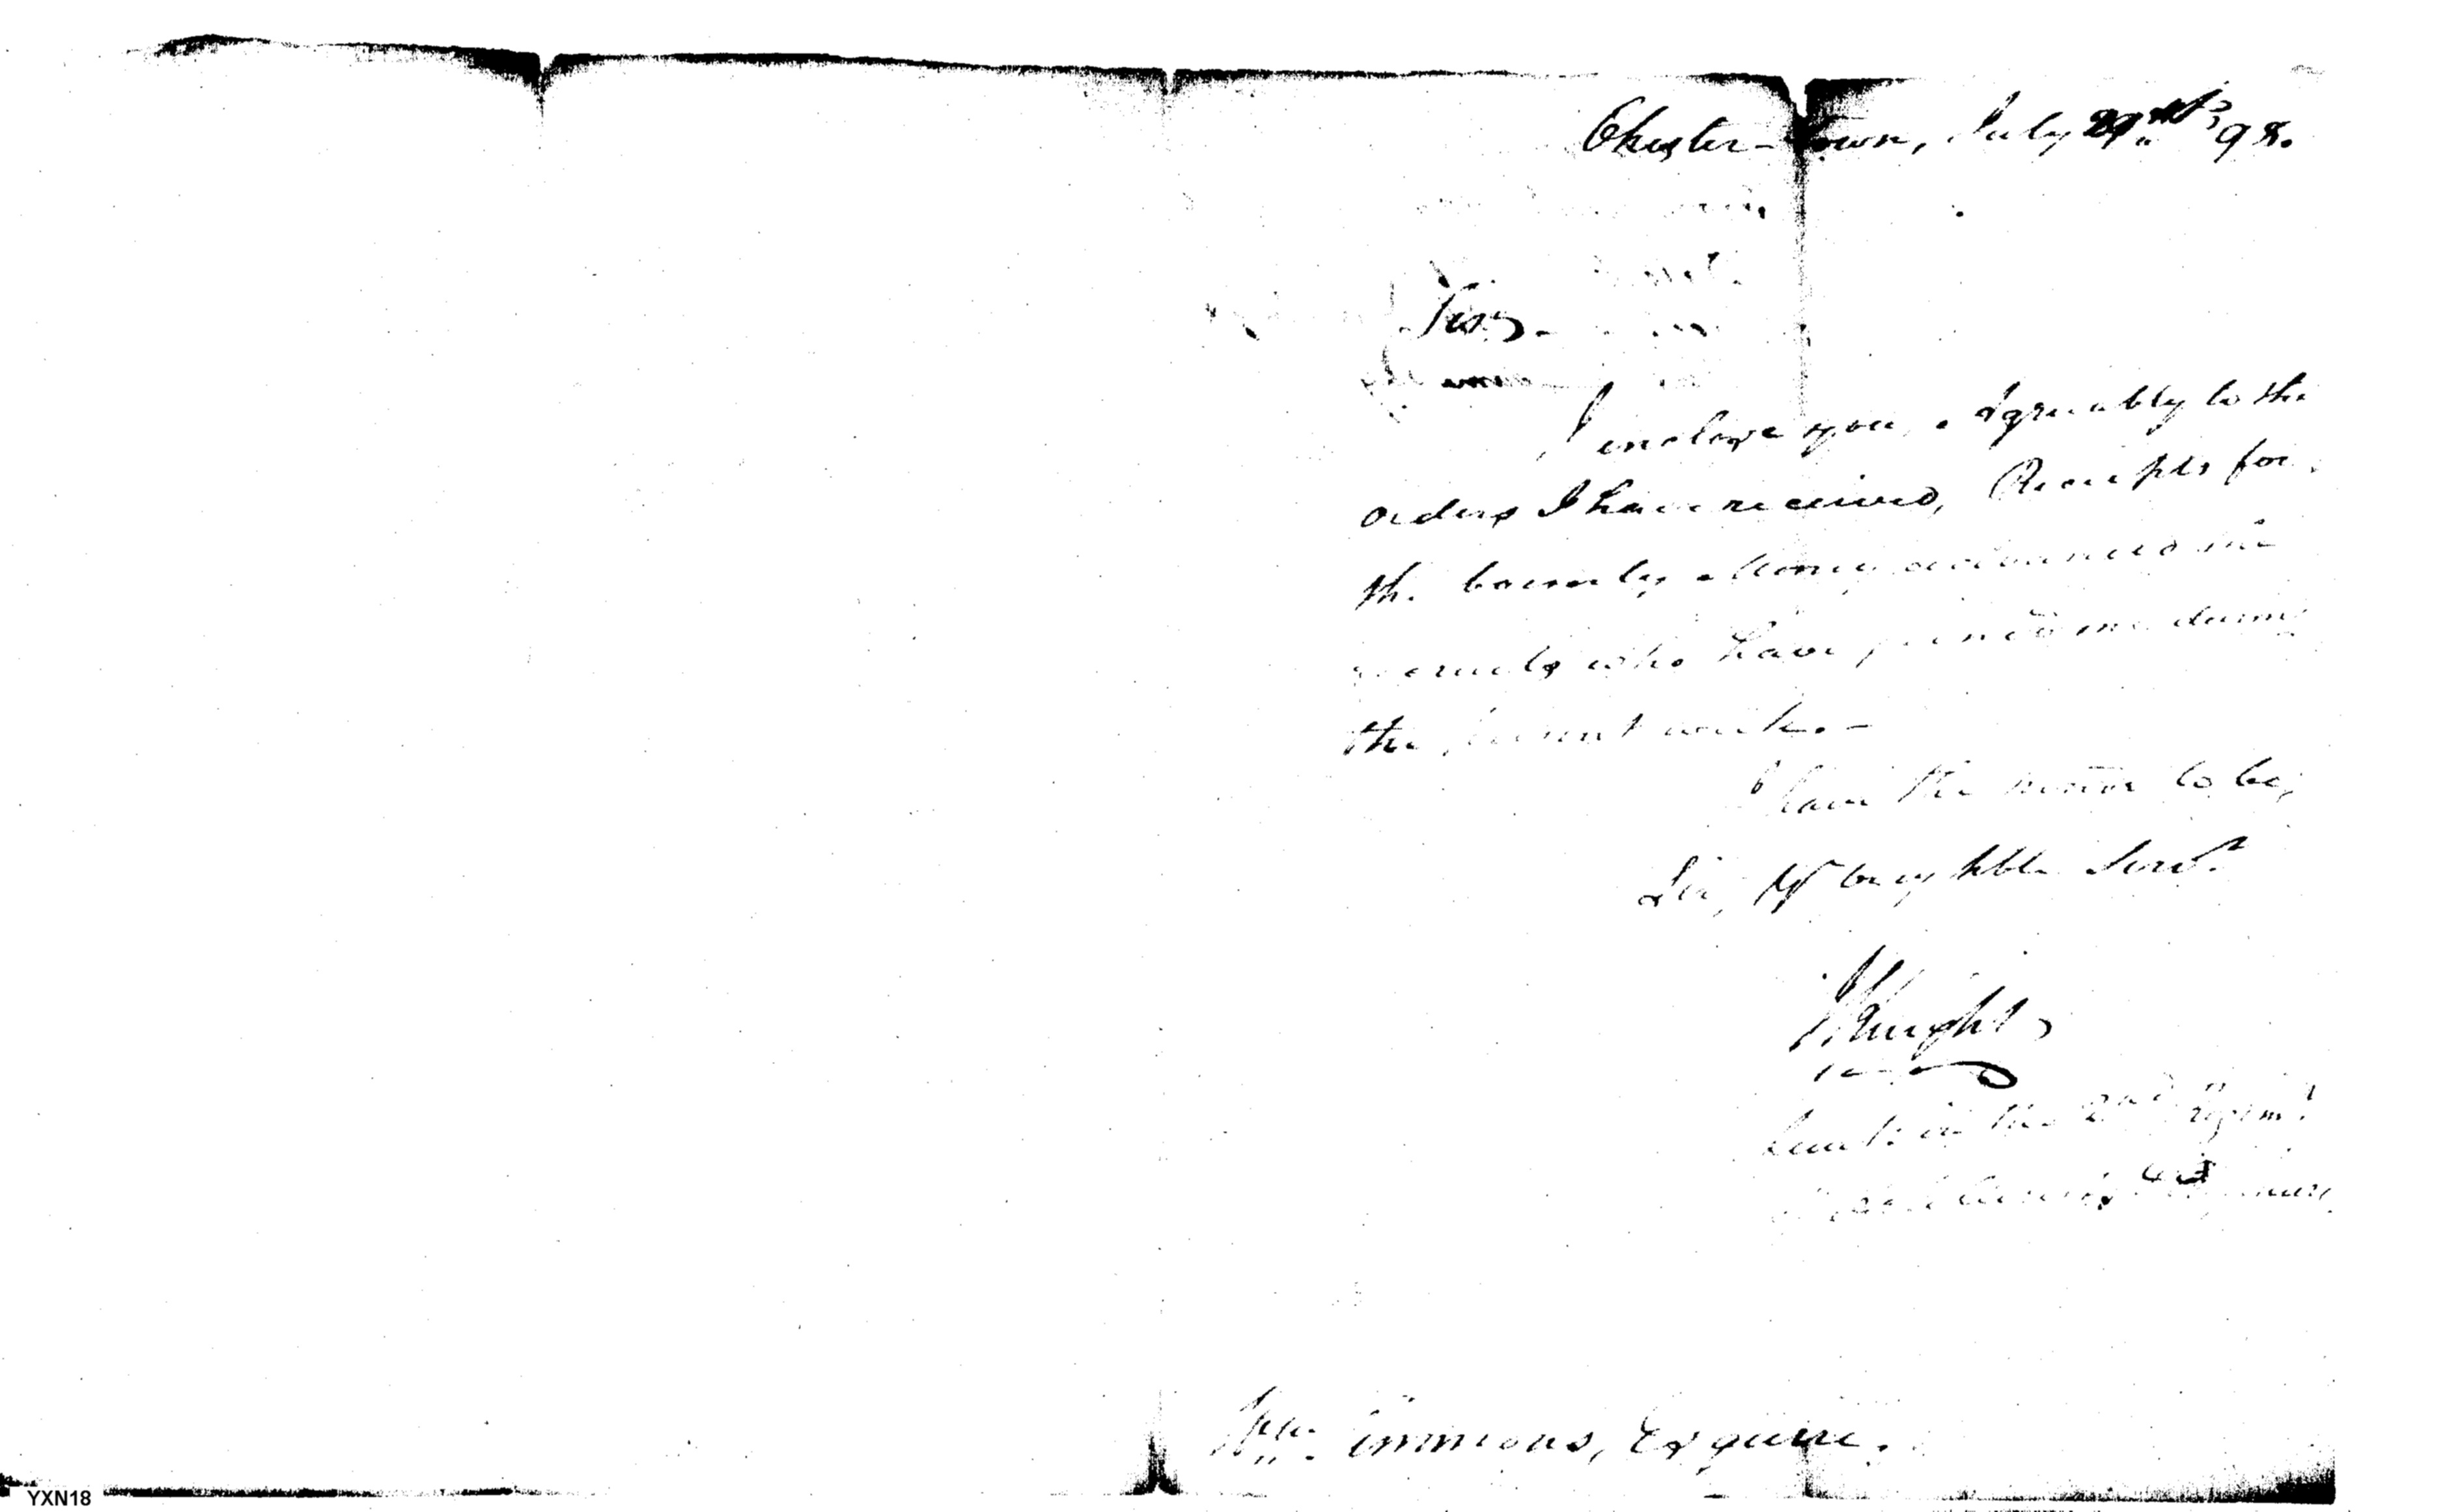 Chester-town, July 29th, 98.
Sir,
I inclose you, agreeably to the
orders I have received, Receipts for
the bounty Money advanced the
recruits who have joined me during
the present week. -
I have the honor to be,
Sir, Yr. very hble Servt.
J Knight,
Lieut: in the 2nd Regimt
Wm. Simmons, Esquire.
YXN18